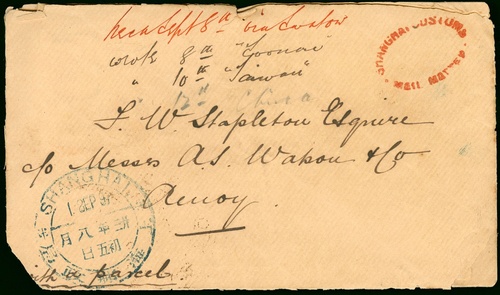 Recd Sept 8th via Swatow
wrote 8th "Toonan"
" 10th "Taiwan"
" 12th China
SHANGHAI CUSTOMS
Mail Matter
F. W. Stapleton Esquire
c/o Messrs A. S. Watson & Co
Amoy.
SHANGHAI
1 SEP
年八月
初五日
with a parcel